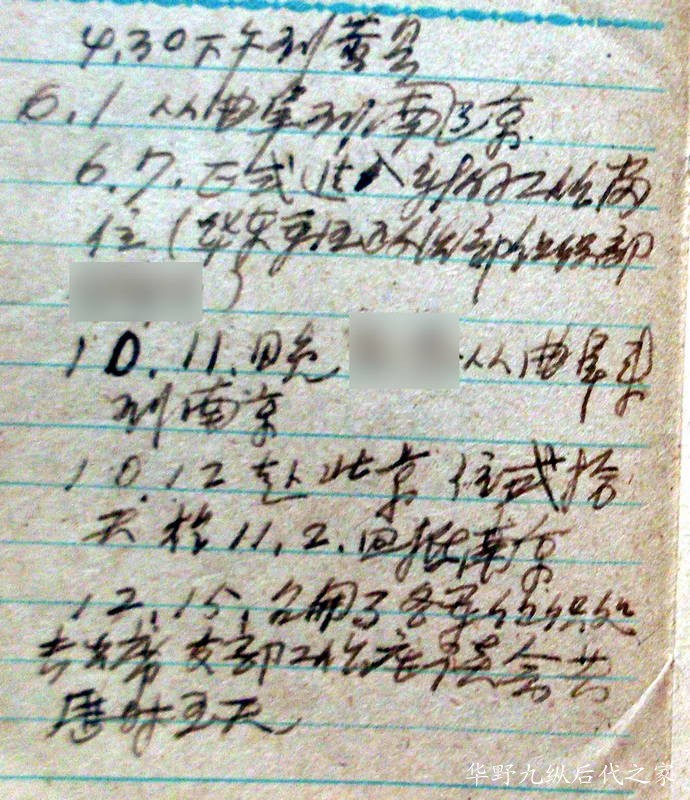 4.30下午到黄县
6.1 从曲阜到南京
6.7.正式进入新的工作岗
位(华东军区政治部组织部
)
10.11.田免 从曲阜来
到南京
10.12赴北京住弍拾
天于11.2.回抵南京
12.15.召开了各军组织处
长出席支部工作座谈会共
历时五天
华野九纵后代之家